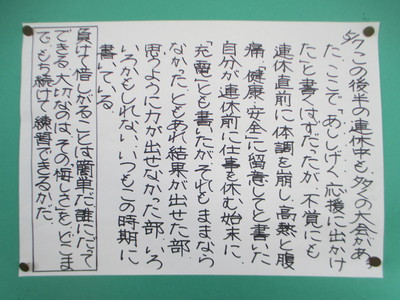 5/7この後半の連休中も多くの大会があっ
た。ここで「あししげく応援に出かけ
た」と書くはずだったが、不覚にも
連休直前に体調を崩し、高熱と腹
痛。「健康、安全に留意して」と書いた
自分が連休前に仕事を休む始末に。
「充電」とも書いたがそれもままなら
なかった。ともあれ結果が出せた部、
思うように力が出せなかった部、いろ
いろかもしれない。いつもこの時期に
書いている
負けて悔しがることは簡単だ、誰にだって
できる。大切なのは、その悔しさをどこま
でもち続けて練習できるかだ。